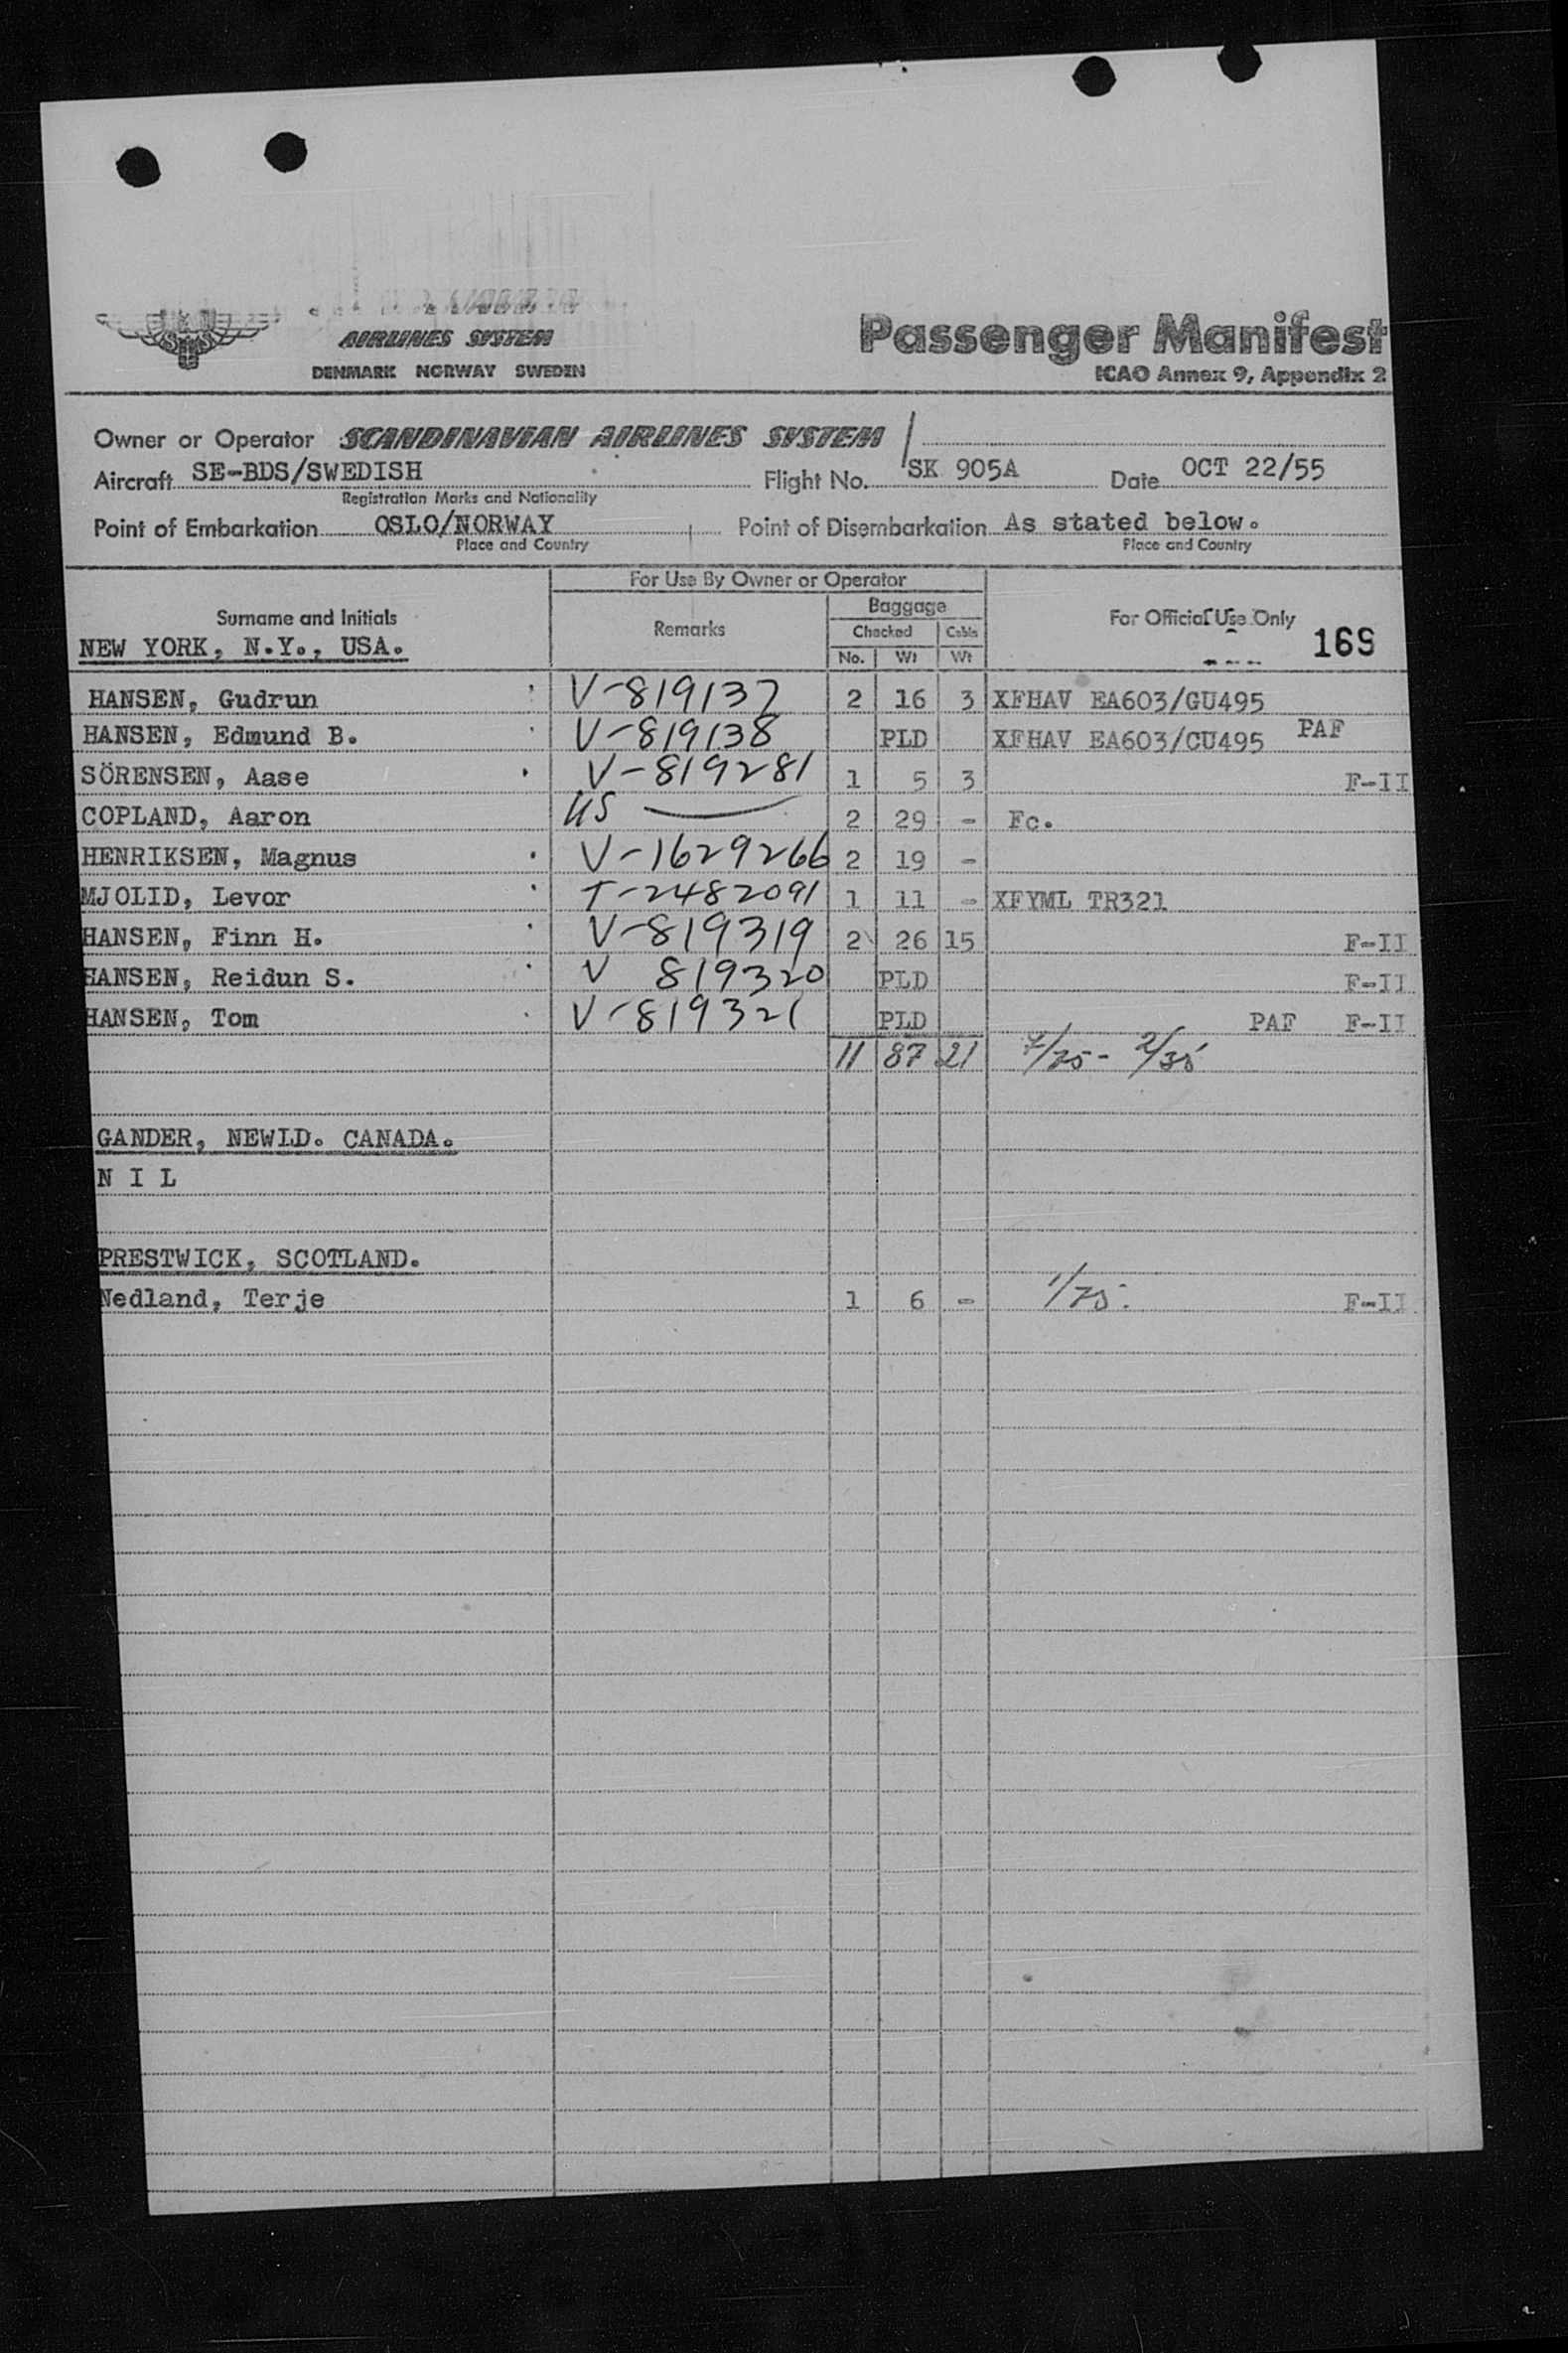 AIRLINES SYSTEM
DENMARK NORWAY SWEDEN
Passenger Manifest
ICAO Annex 9, Appendix 2
Owner or Operator SCANDINAVIAN AIRLINES SYSTEM
Aircraft SE-BDS/SWEDISH Flight No. SK 905A Date OCT 22/55
Registration Marks and Nationality
Point of Embarkation OSLO/NORWAY Point of Disembarkation As stated below.
Place and Country Place and Country
For Use By Owner or Operator
Surname and Initials Remarks Baggage For Official Use Only
Checked Cabin
NEW YORK, N.Y., USA. No. Wt Wt 169
HANSEN, Gudrun V-819137 2 16 3 XFHAV EA603/GU495
HANSEN, Edmund B. V-819138 PLD XFHAV EA603/CU495 PAF
SÖRENSEN, Aase V-819281 1 5 3 F-II
COPLAND, Aaron US 2 29 - Fc.
HENRIKSEN, Magnus V-1629266 2 19 -
MJOLID, Levor T-2482091 1 11 - XFYML TR321
HANSEN, Finn H. V-819319 2 26 15 F-II
HANSEN, Reidun S. V 819320 PLD F-II
HANSEN, Tom V-819321 PLD PAF F-II
11 87 21 7/75 - 2/35
GANDER, NEWLD. CANADA.
N I L
PRESTWICK, SCOTLAND.
Nedland, Terje 1 6 - 1/75. F-II